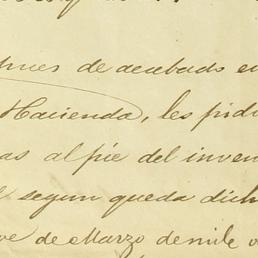 pues de acabado en
Hacienda, les pidi
as al pié del inven
segun queda dich
ve de Marzo de mil o